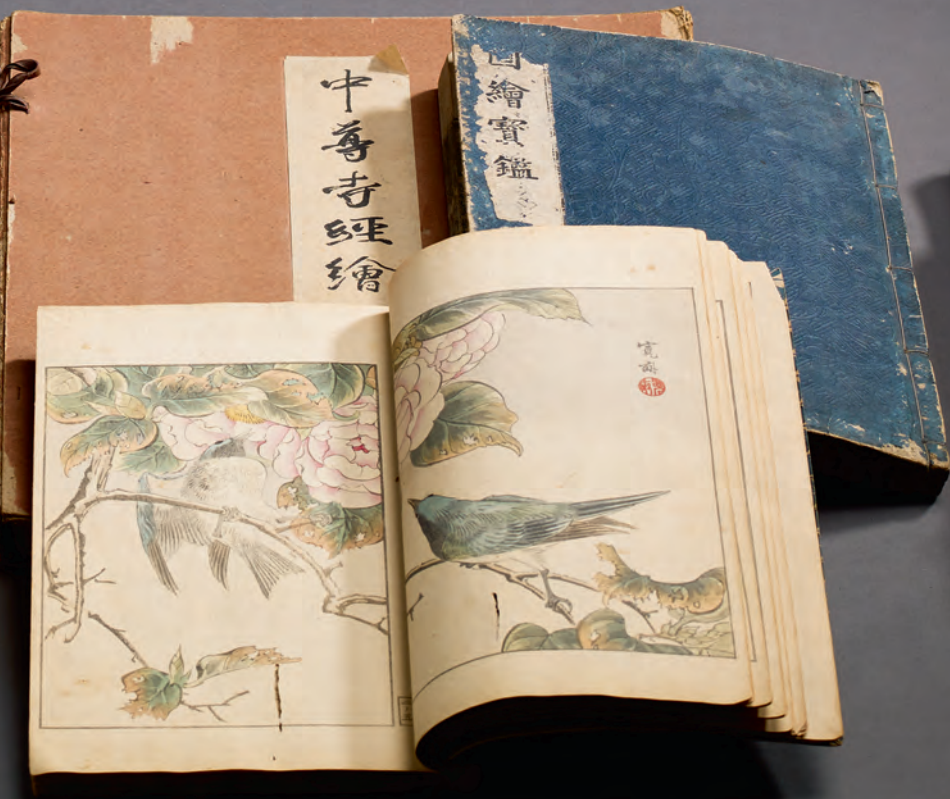 中尊寺經繪
繪寶鑑
寛